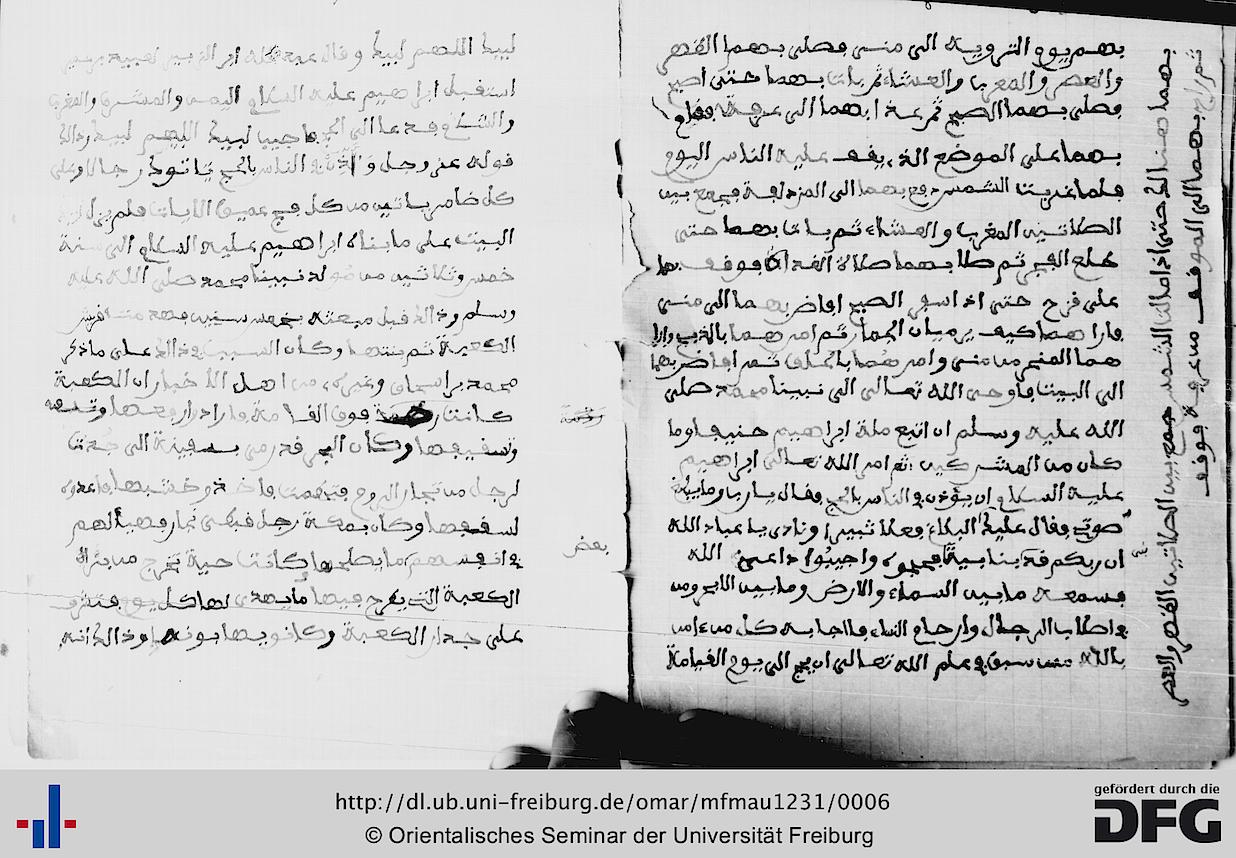 بهم يوم التروية الى منى فصلى بهما الظهر
والعصر والمغرب والعشاء ثم باتا بهما حتى اصبح
فصلى بهما الصبح ثم غدا بهما الى عرفة فقام
بهما على الموضع الذي يقف عليه الناس اليوم
فلما غربت الشمس دفع بهما الى المزدلفة فجمع بين
الصلاتين المغرب والعشاء ثم باتا بهما حتى
طلع الفجر ثم صلا بهما صلاة الغداة فوقف بهما
على قزح حتى اذا اسفر الصبح افاض بهما الى منى
فاراهما كيف يرميان الجمار ثم امرهما بالذبح وارا
هما المنحر من منى وامرهما بالحلق ثم افاض بهما
الى البيت فاوحى الله تعالى الى نبينا محمد صلى
الله عليه وسلم ان اتبع ملة ابراهيم حنيفا وما
كان من المشركين ثم امر الله تعالى ابراهيم
عليه السلام ان يؤذن في الناس بالحج فقال يا رب وما يبلغ
صوتي فقال عليك البلاغ فعلا ثبيرا ونادى يا عباد الله
ان ربكم قد بنا بيتا فحجوه واجيبوا داعي الله
فسمعه ما بين السماء والارض وما بين الابحر ومن
في اصلاب الرجال وارحام النساء فاجابه كل من ءامن
بالله ممن سبق في علم الله تعالى ان يحج الى يوم القيامة
بهما هنالك حتى اذا مالت الشمس جمع بين الصلاتين الظهر والعصر
ثم راح بهما الى الموقف من عرفة فوقف
لبيك اللهم لبيك وقال
استقبل ابراهيم عليه السلام اليمن والمشرق والمغرب
والشام فدعا الى الحج فاجيب لبيك اللهم لبيك وذالك
قوله عز وجل واذن في الناس بالحج ياتوك رجالا وعلى
كل ضامر ياتين من كل فج عميق الايات فلم يزل
البيت على ما بناه ابراهيم عليه السلام الى سنة
خمس وثلاثين من مولد نبينا محمد صلى الله عليه
وسلم وذالك قبل مبعثه بخمس سنين فهدمت قريش
الكعبة ثم بنتها وكان السبب في ذالك على ما ذكر
محمد بن اسحاق وغيره من اهل الاخبار ان الكعبة
كانت فوق القامة فارادوا رفعها
وتسقيفها وكان البحر قد رمى بسفينة الى جدة
لرجل من تجار الروم فتهدمت فاخذ وخشبها فاعدوه
لسقفها وكان بمكة رجل قبطي نجار فهيأ لهم
في انفسهم ما يصلحها وكانت حية تخرج من بئر
الكعبة التي يطرح فيها ما يهدى لها كل يوم فتشرف
على جدار الكعبة وكانوا يهابونها وذالك انه
بعض
http://dl.ub.uni-freiburg.de/omar/mfmau1231/0006
© Orientalisches Seminar der Universität Freiburg
gefördert durch die
DFG